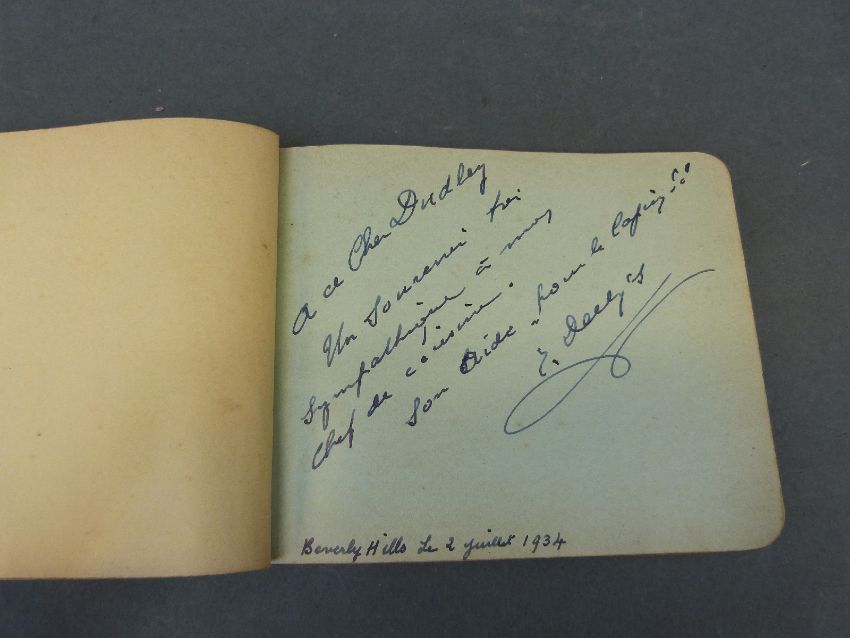 A ce Cher Dudley
Un Souvenir trè
Sympathique à mon
Chef de cuisine.
Son Aide "pour le
Beverly Hills Le 2 Juillet 1934